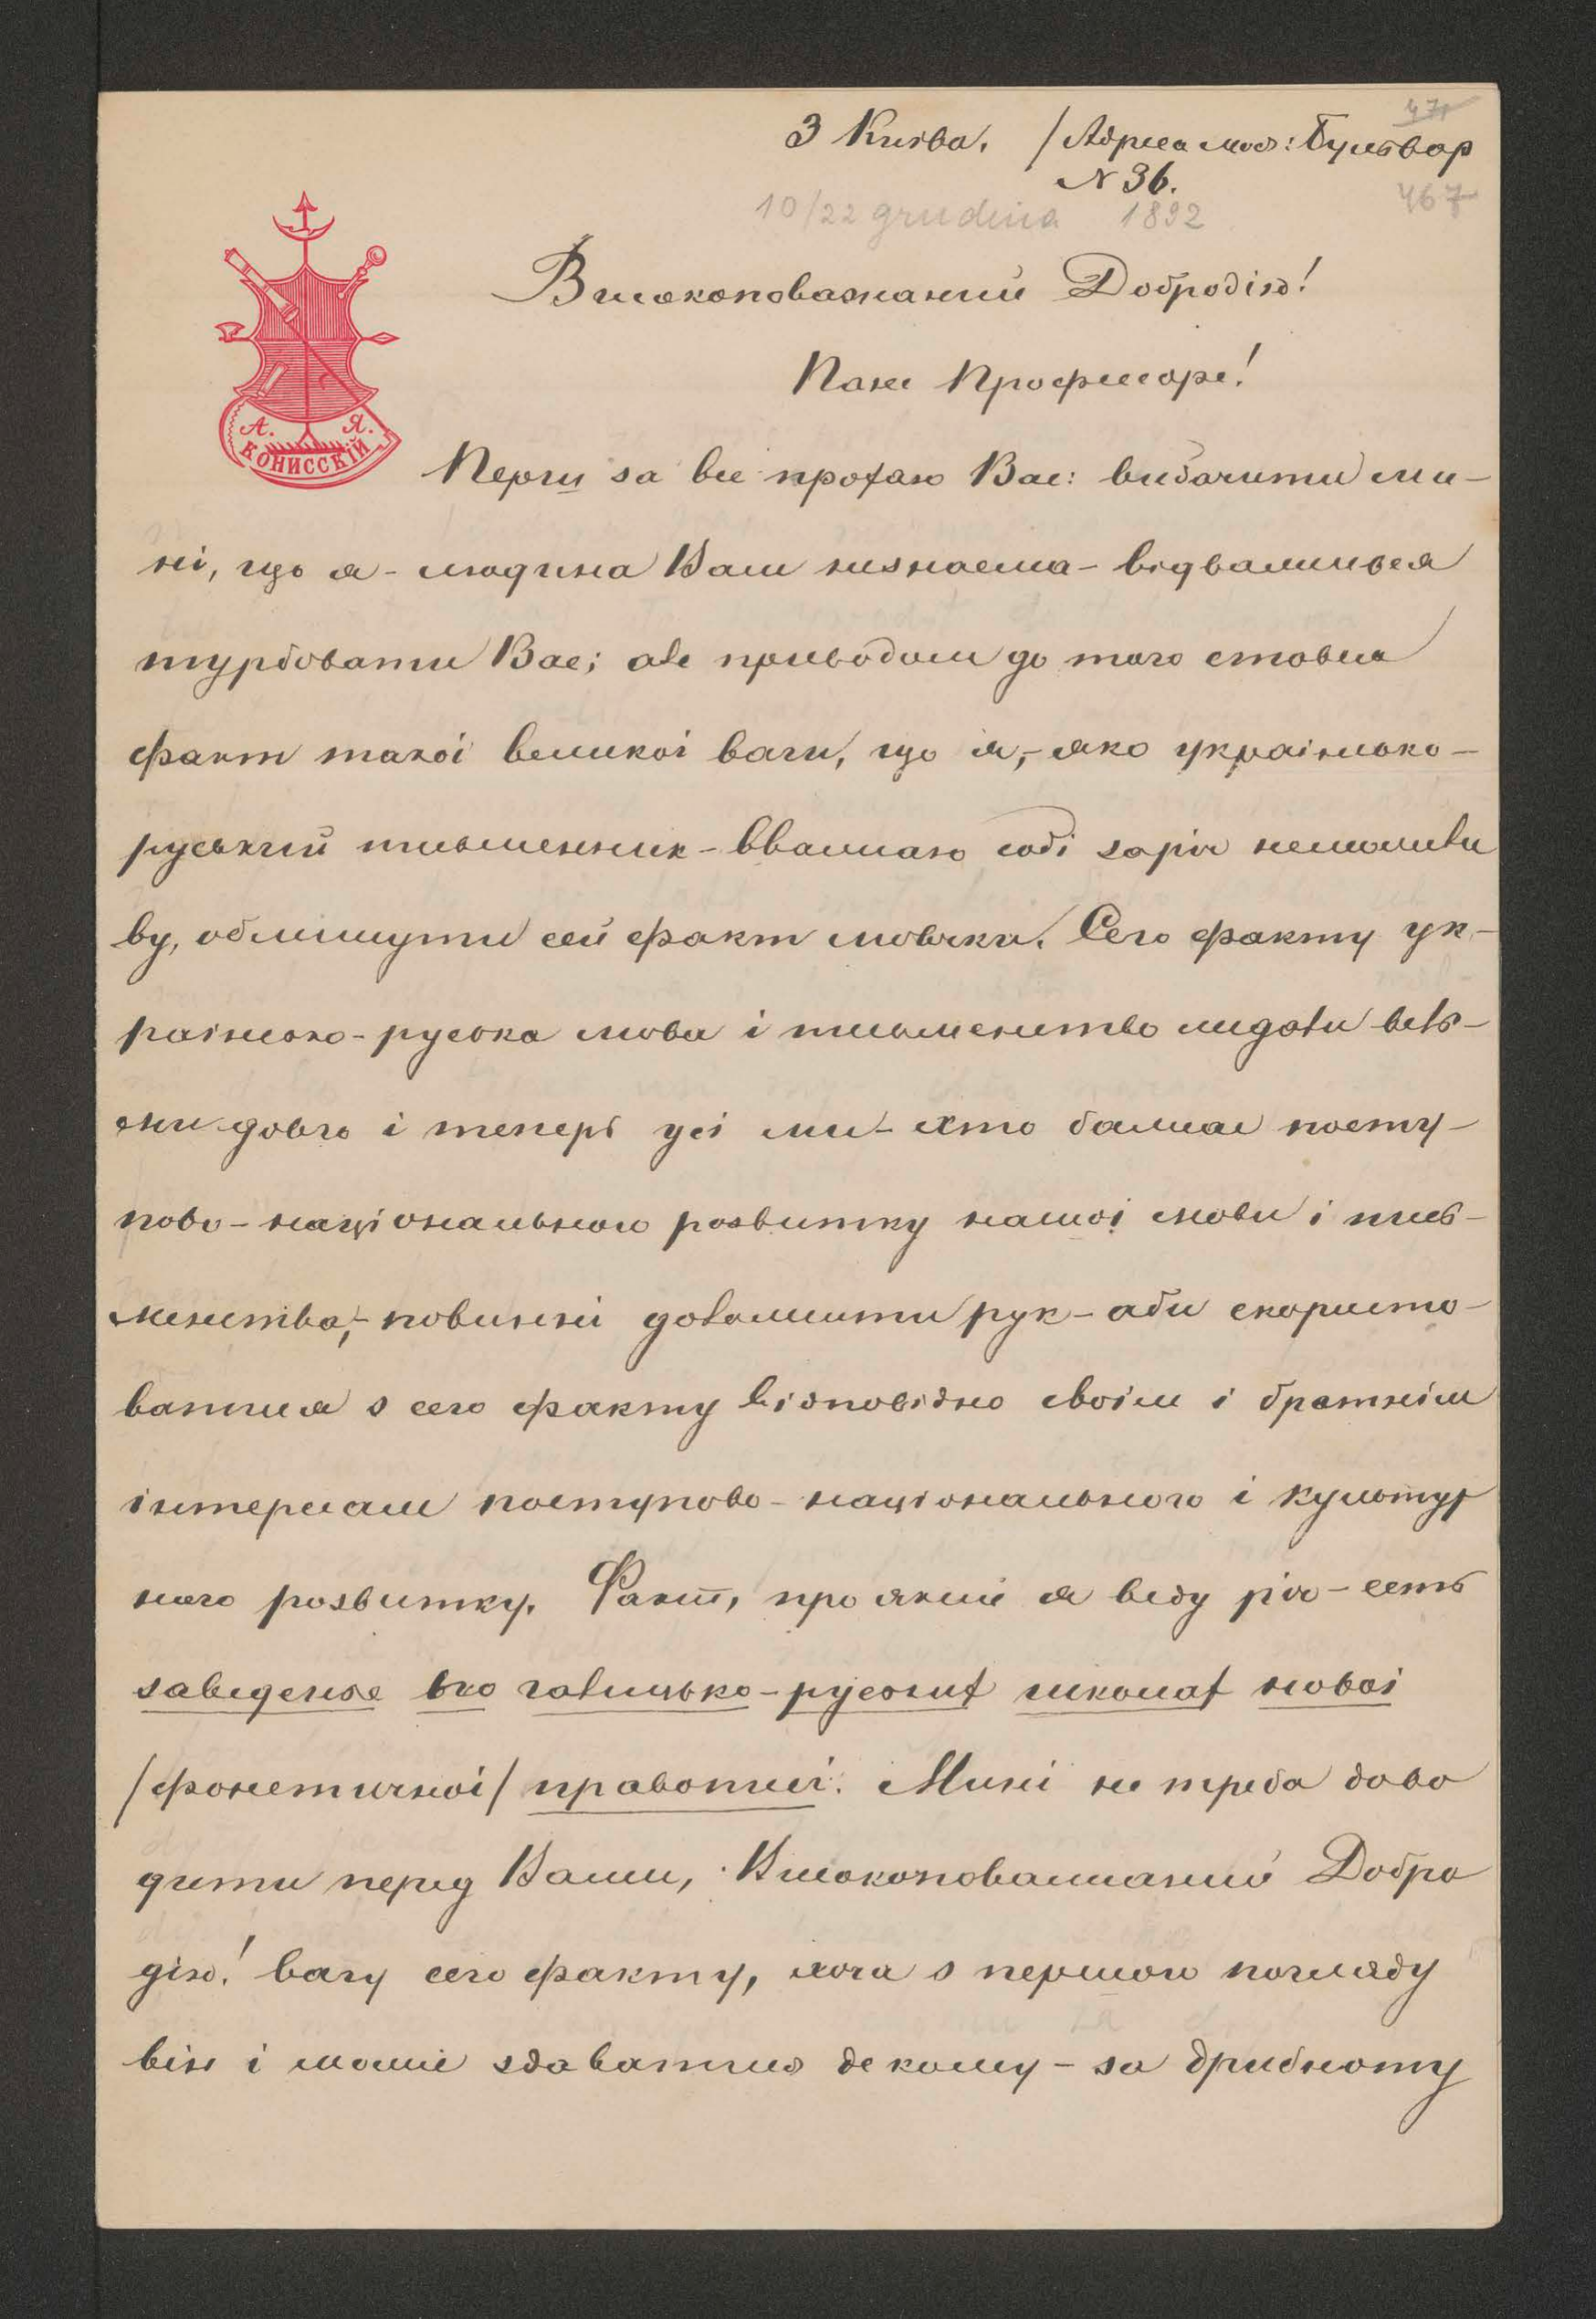 47
З Киӱва. /Адреса моя: Бульвар
N 36.
467
10/22 grudnia 1892
Високоповажаний Добродію!
Пане Професоре!
А. Я.
КОНИССКІЙ
Перш за все прохаю Вас: вибачити ми-
ні, що я - людина Вам незнаема - відважився
турбовати Вас; але приводом до того стався
факт такоі великоі ваги, що я,- яко украінсько-
руський письменник - вважаю собі за річ неможли
ву, облишути сей факт мовчки. Сего факту ук-
раінсько-руська мова і письменство жидали вель-
ми довго і теперь усі ми - хто бажае посту-
пово-національного розвитку нашоі мови і пись-
менства,- повинні доложити рук - аби скористо-
ватися з сего факту відповідно своім і братнім
інтересам поступово-національного і культур
ного розвитку. Факт, про який я веду річ - есть
заведенне по галицько-руських школах новоі
/фонетичноі/ правописі. Мині не треба дово
дити перед Вами, Високоповажаний Добро
дію! вагу сего факту, хоча з першого погляду
він і може здаватися декому - за дрибному